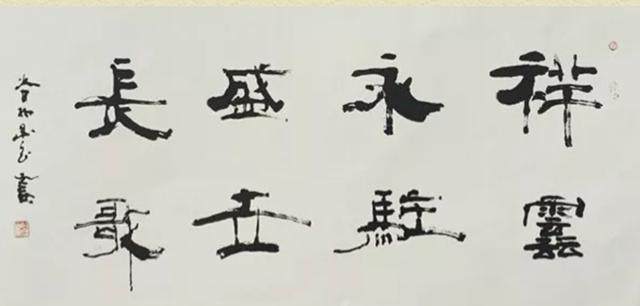 祥雲
永駐
盛世
長歌